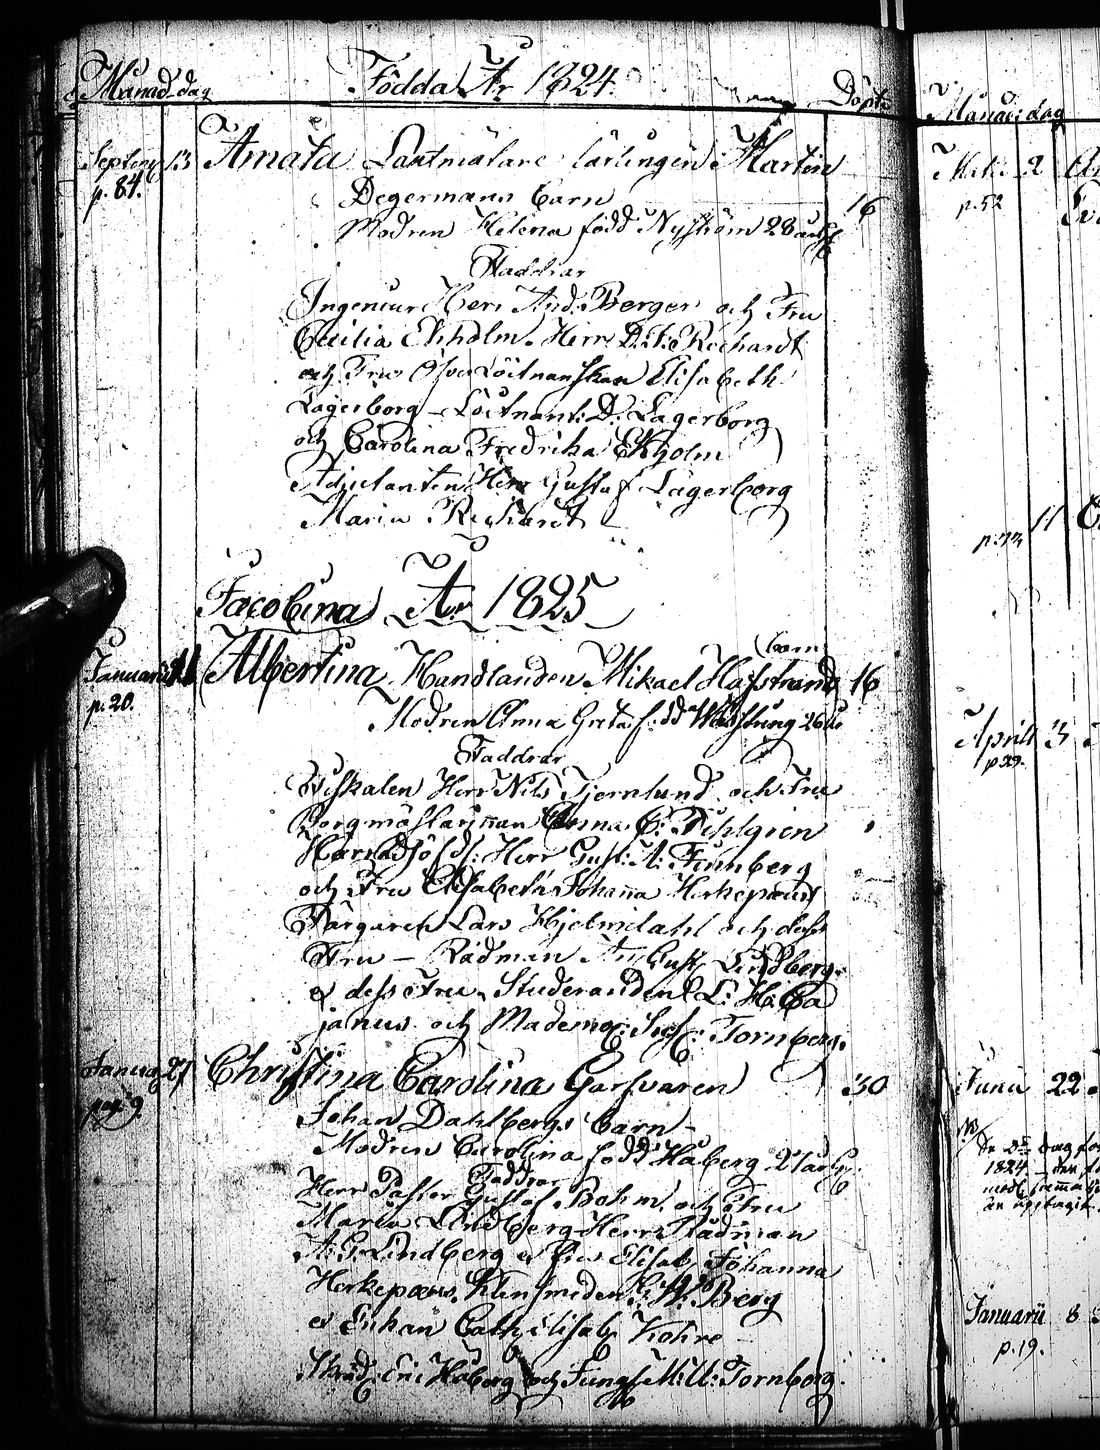 Månad dag Födda År 1824. Döpte
Septemb 13 Amata Lantmätare lärlingen Martin
p. 84. Degermans Barn 16
Modren Helena född Nyström 28 år
Faddrar
Ingenieur Herr And. Berger och Fru
Cecilia Ekholm. Herr D. F. Reichardt
och Fru Öfver Löitnanskan Elisabeth
Lagerborg – Löitnant: D: Lagerborg
och Carolina Fredrika Ekholm
Adjutanten Herr Gustaf Lagerborg
Maria Reichardt
Jacobina År 1825
Barn
Januarii 11 Albertina Handlanden Mikael Hafstrands 16
p. 20. Modren Anna Greta född 26 år
Faddrar
Fiskalen Herr Nils Tjernlund och Fru
Borgmästarinnan Anna C: Pihlgren
Herr Gust: A: Finnberg
och Fru Elisabeta Johanna Herkepæus
Färgaren Lars Hjelmdahl och dess
Fru – Rådman Gust. Lindberg
& dess Fru. Studeranden L: H: Ca
janus och Mademois: Tornberg.
Januarii 27 Christina Carolina Garfvaren 30
pag. 9. Johan Dahlbergs Barn –
Modren Carolina född Håberg 21 år
Faddrar
Herr Pastor Gustaf Bohm, och Fru
Maria Lindberg Herr Rådman
A: G: Lindberg & Fru Elisab. Johanna
Herkepæus. Klensmeden G: W: Berg
& Enkan Cath. Elisab. Kohre
Eric Håberg och Jungf. M: U: Tornberg.
Månad: dag
2
p. 52
11
Aprill 3
p 29.
Junii 22
NB
1824
Januarii 8
p. 19.